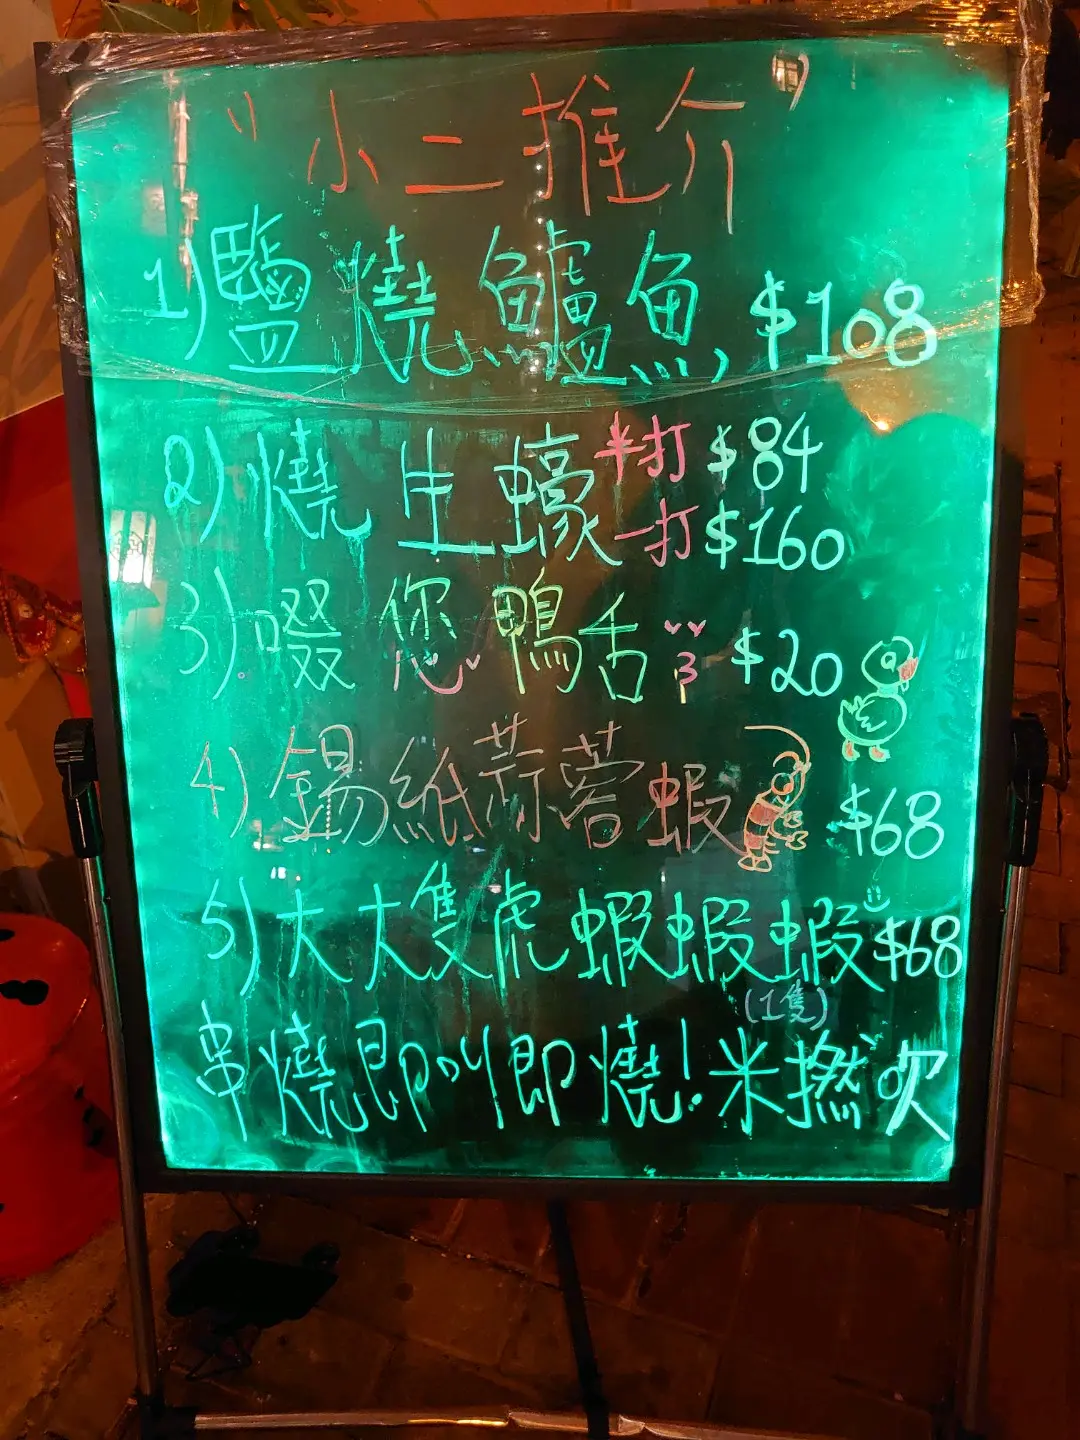 "小二推介"
1)鹽燒鱸魚, $108
2)燒生蠔半打 $84
一打 $160
3)啜您鴨舌 $20
4)錫紙蒜蓉蝦 $68
5)大大隻虎蝦蝦蝦 $68
(1隻)
串燒即叫即燒!米撚吹